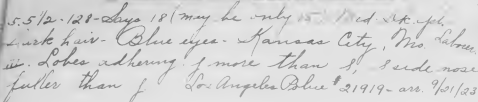 5.5 1/2 - 128 - Says 18 (may be only 15 ed. Dk.
dark hair - Blue eyes - Kansas City, Mo. Laborer
Lobes adhering. f more than S, S side nose
fuller than f Los Angeles Blue # 21919 - arr. 9/21/23